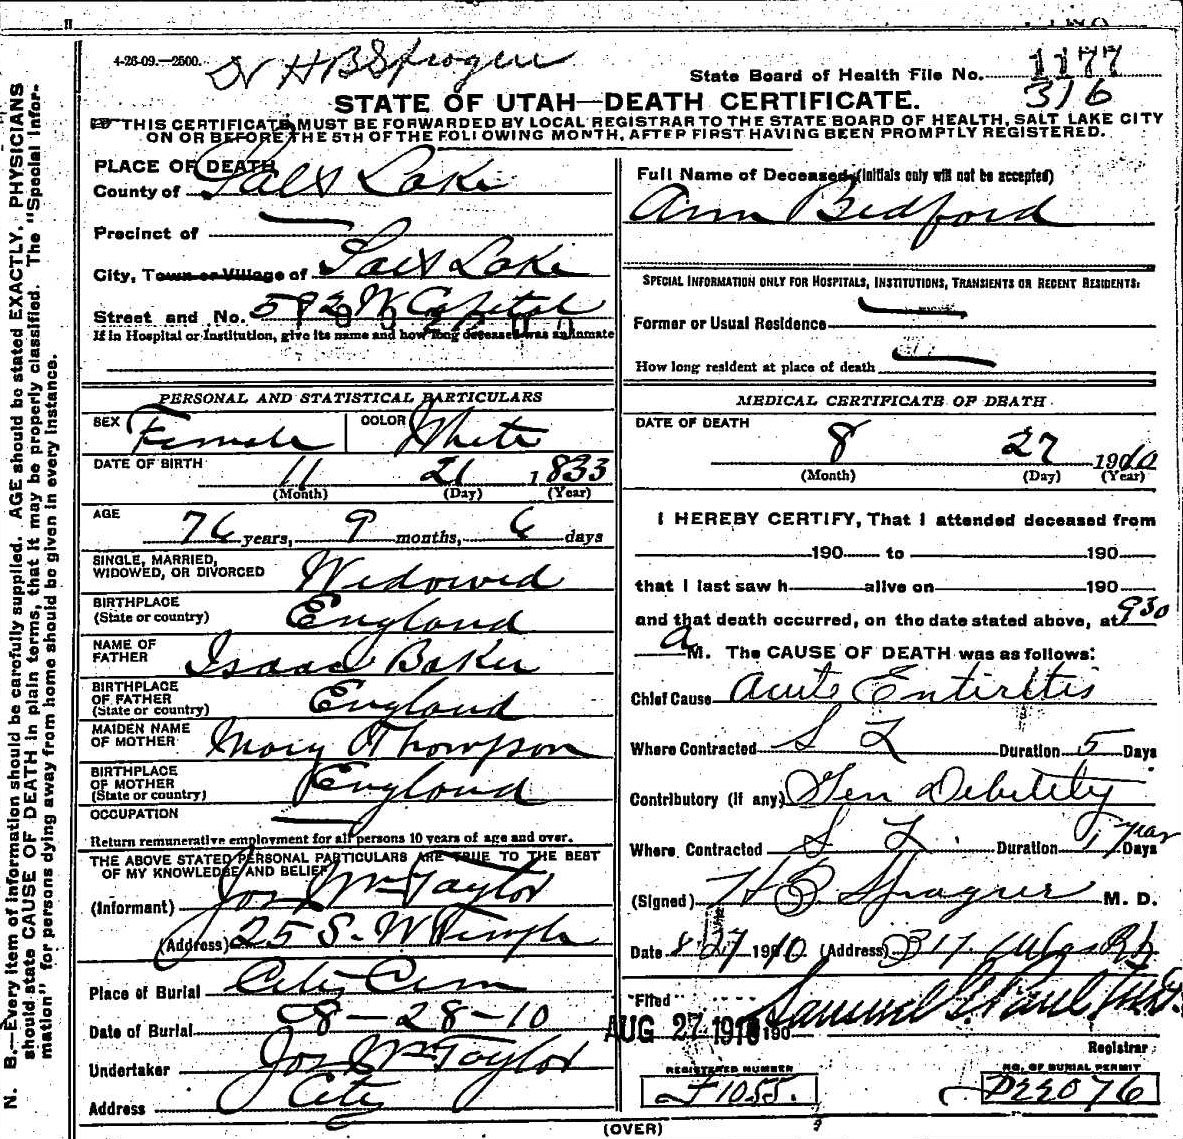 4-26-09.—2500.
H B Sprague
State Board of Health File No. 1177
316
STATE OF UTAH—DEATH CERTIFICATE.
THIS CERTIFICATE MUST BE FORWARDED BY LOCAL REGISTRAR TO THE STATE BOARD OF HEALTH, SALT LAKE CITY
ON OR BEFORE THE 5TH OF THE FOLLOWING MONTH, AFTER FIRST HAVING BEEN PROMPTLY REGISTERED.
PLACE OF DEATH
County of Salt Lake
Precinct of
City, Town or Village of Salt Lake
Street and No. 592 W Capitol
If in Hospital or Institution, give its name and how long deceased was an inmate
Full Name of Deceased (Initials only will not be accepted)
Ann Bedford
SPECIAL INFORMATION ONLY FOR HOSPITALS, INSTITUTIONS, TRANSIENTS OR RECENT RESIDENTS:
Former or Usual Residence
How long resident at place of death
PERSONAL AND STATISTICAL PARTICULARS
SEX Female COLOR White
DATE OF BIRTH 11 21 1833
(Month) (Day) (Year)
AGE
76 years, 9 months, 6 days
SINGLE, MARRIED,
WIDOWED, OR DIVORCED Widowed
BIRTHPLACE
(State or country) England
NAME OF
FATHER Isaac Baker
BIRTHPLACE
OF FATHER
(State or country) England
MAIDEN NAME
OF MOTHER Mary Thompson
BIRTHPLACE
OF MOTHER
(State or country) England
OCCUPATION
Return remunerative employment for all persons 10 years of age and over.
THE ABOVE STATED PERSONAL PARTICULARS ARE TRUE TO THE BEST
OF MY KNOWLEDGE AND BELIEF
(Informant) Jos Wm Taylor
(Address) 25 S. W Temple
Place of Burial City Cem
Date of Burial 8-28-10
Undertaker Jos Wm Taylor
Address City
MEDICAL CERTIFICATE OF DEATH
DATE OF DEATH
8 27 1910
(Month) (Day) (Year)
I HEREBY CERTIFY, That I attended deceased from
190 to 190
that I last saw h alive on 190
and that death occurred, on the date stated above, at 930
a M. The CAUSE OF DEATH was as follows:
Chief Cause Acute Entiritis
Where Contracted S L Duration 5 Days
Contributory (if any) Gen Debility
Where Contracted S L. Duration 1 year Days
(Signed) H B Sprague M. D.
Date 8 27 1910 (Address) 317
Filed
AUG 27 1910 190 Samuel G Paul M.D.
Registrar
REGISTERED NUMBER
F1055.
NO. OF BURIAL PERMIT
D22076
(OVER)
N. B.—Every item of information should be carefully supplied. AGE should be stated EXACTLY. PHYSICIANS
should state CAUSE OF DEATH in plain terms, that it may be properly classified. The "Special Infor-
mation" for persons dying away from home should be given in every instance.